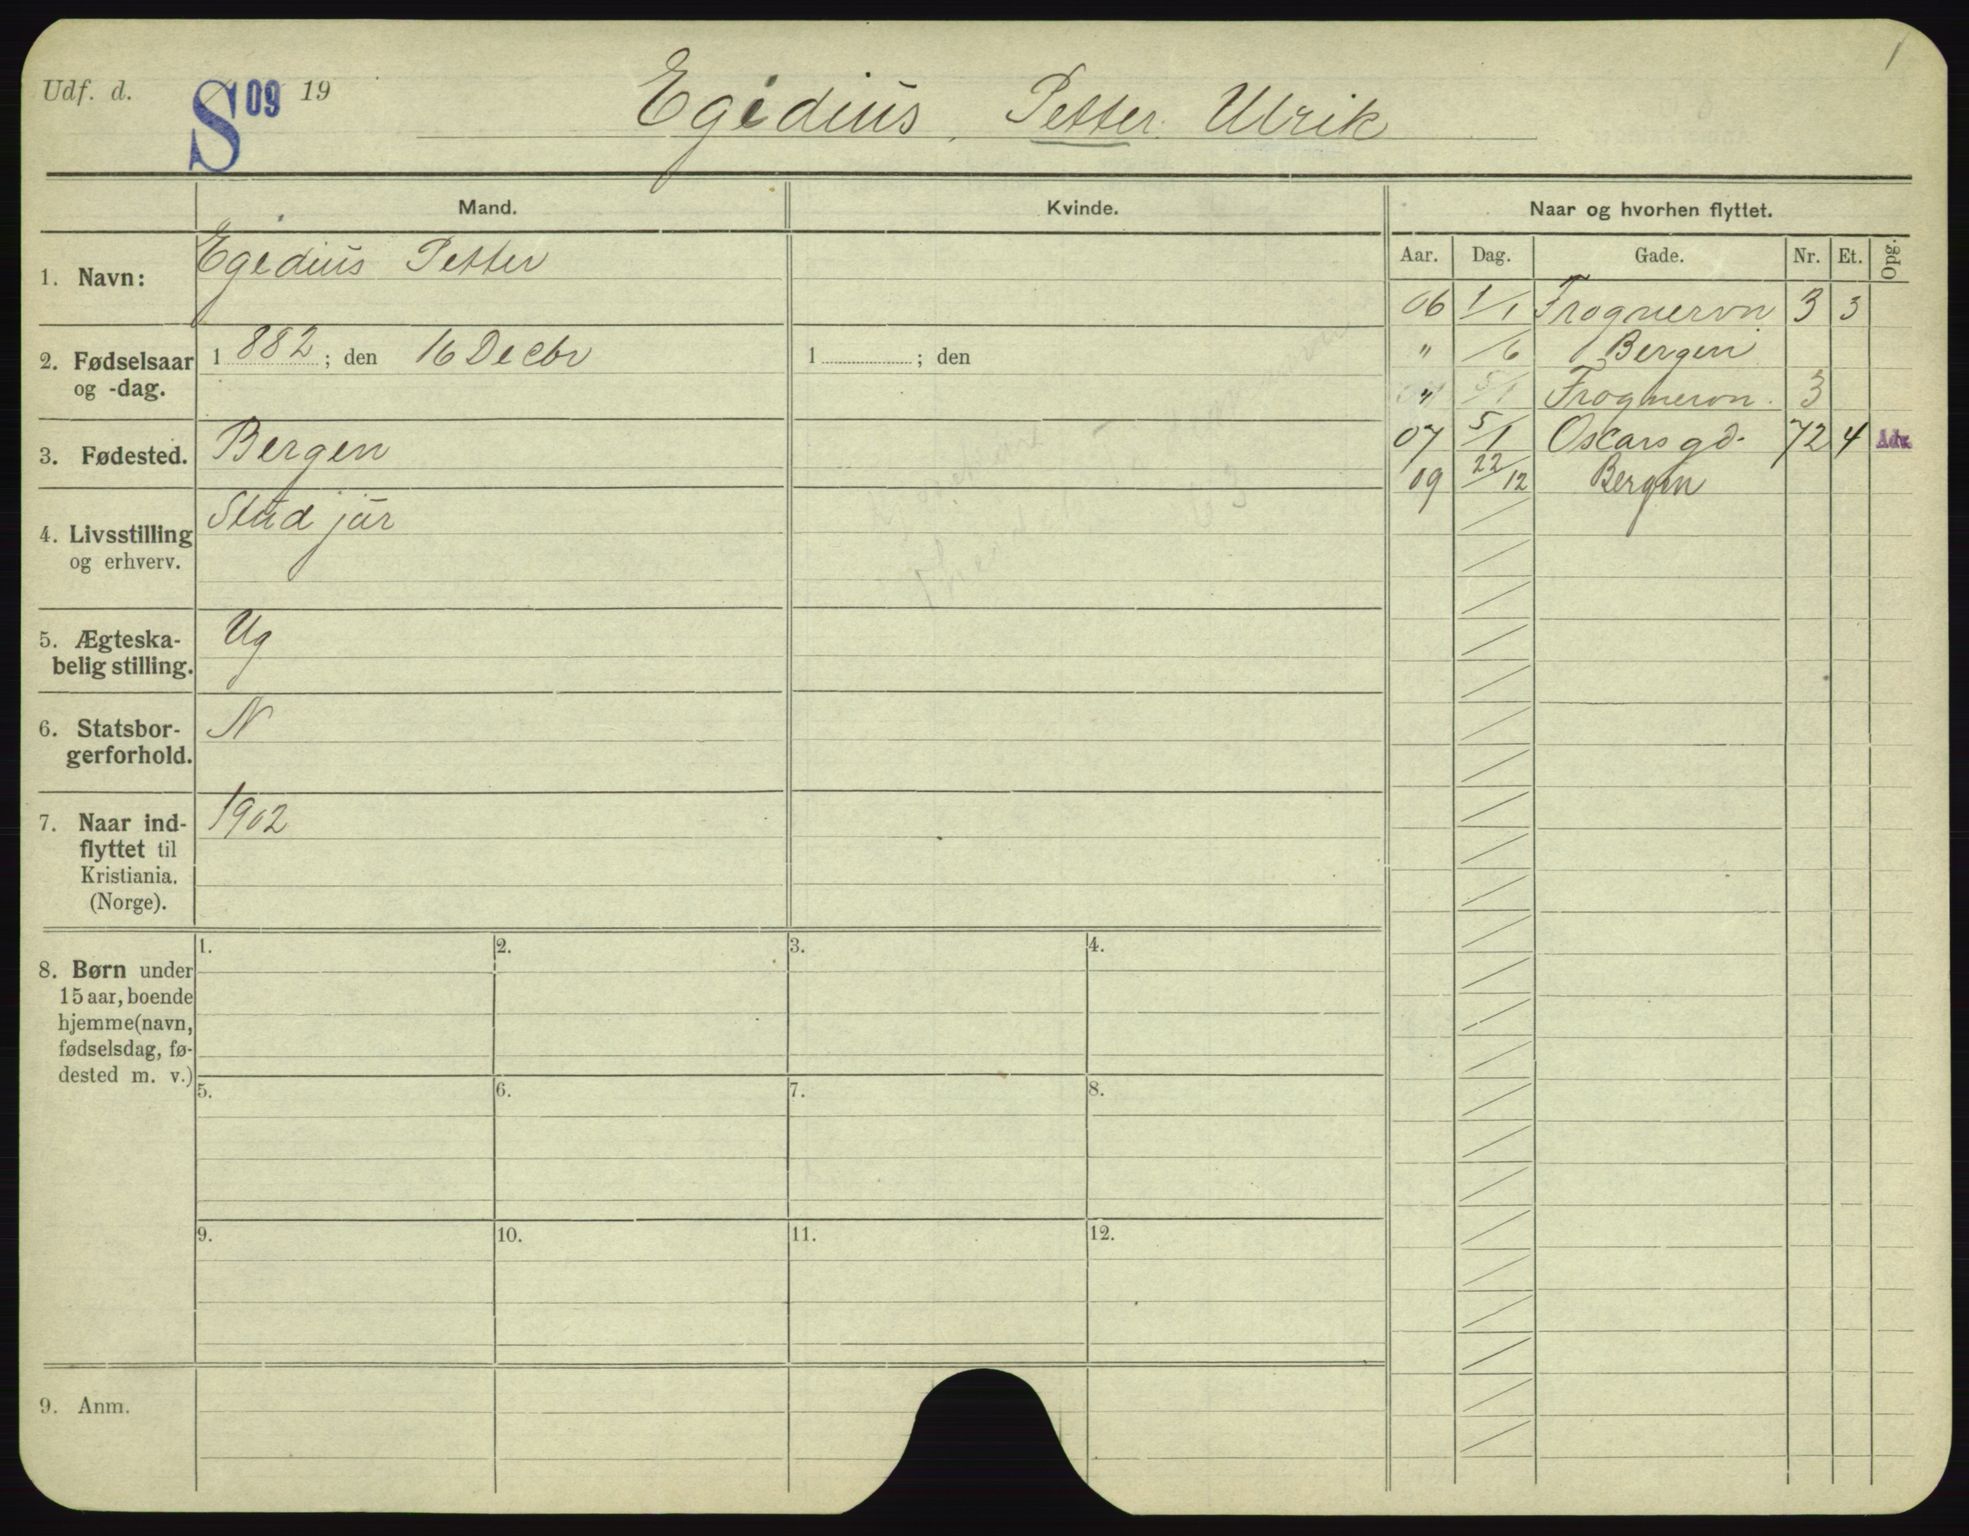 Udf. d. S 09 19 Egidius, Petter Ulrik 1
Mand. Kvinde. Naar og hvorhen flyttet.
Aar. Dag. Gade. Nr. Et. Opg.
1. Navn: Egidius Petter
06 1/1 Frognervn 3 3
2. Fødselsaar og -dag. 1882; den 16 Decbr 1 ; den
" /6 Bergen
" 5/1 Frognervn. 3
3. Fødested. Bergen
07 5/1 Oscarsgd. 72 4 Adr.
09 22/12 Bergen
4. Livsstilling Stud jur
og erhverv.
5. Ægteska- Ug
belig stilling.
6. Statsbor- N
gerforhold.
7. Naar ind- 1902
flyttet til
Kristiania.
(Norge).
8. Børn under
15 aar, boende
hjemme (navn,
fødselsdag, fø-
dested m. v.)
1. 2. 3. 4.
5. 6. 7. 8.
9. 10. 11. 12.
9. Anm.